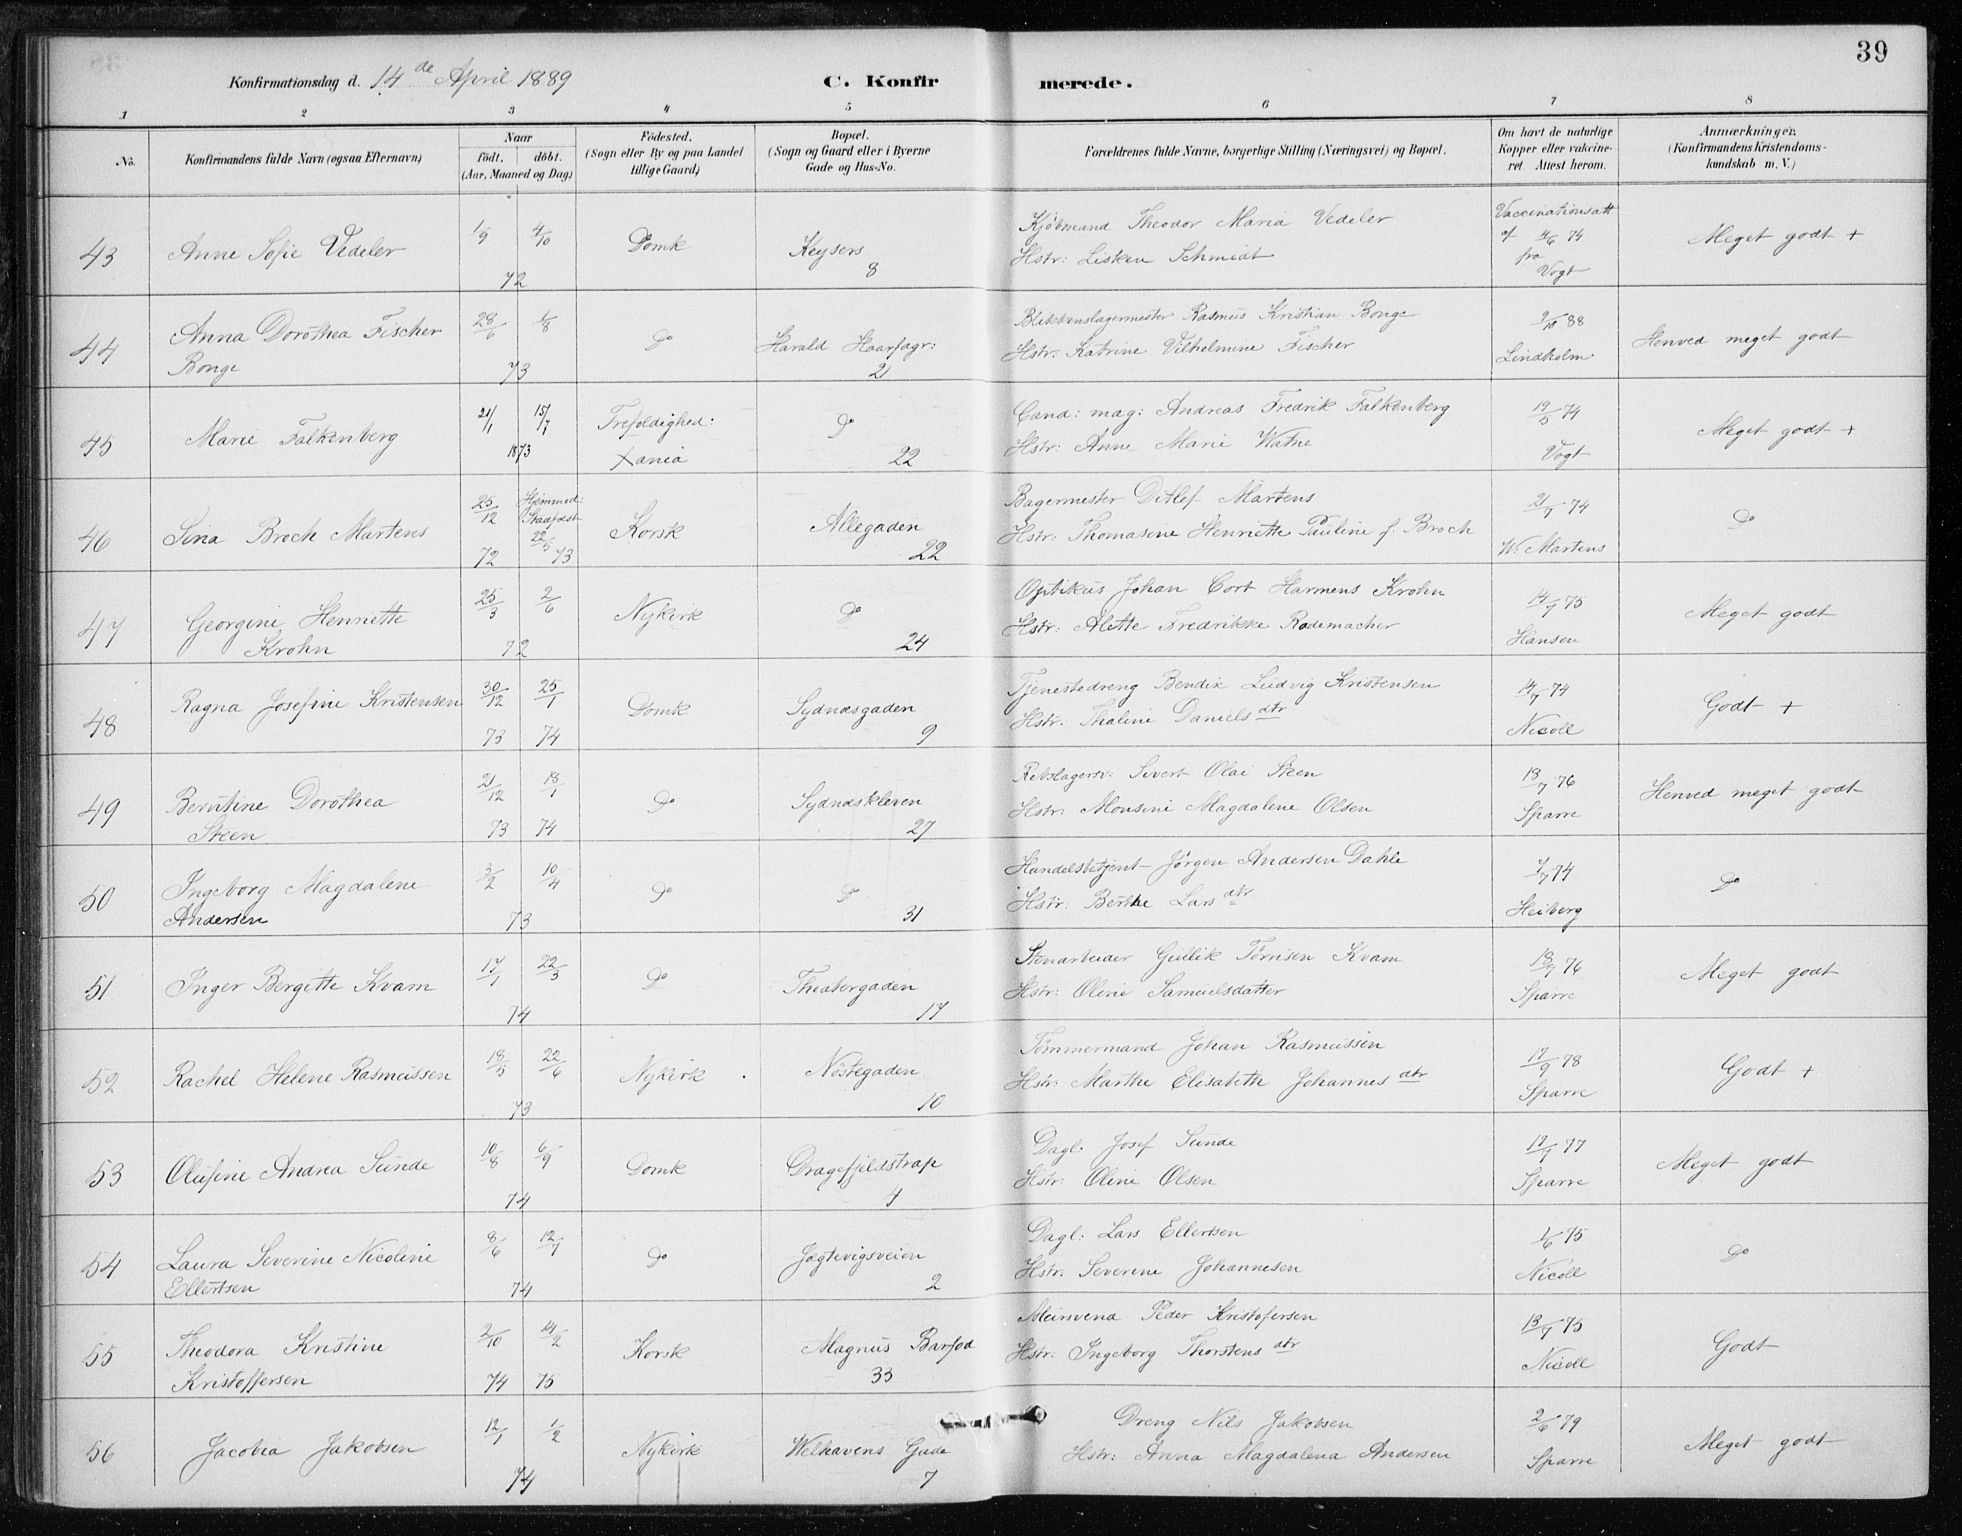 39
Konfirmationsdag d. 14de April 1889 C. Konfirmerede.
1 2 3 4 5 6 7 8
No. Konfirmandens fulde Navn (ogsaa Efternavn) Naar født. døbt. (Aar, Maaned og Dag) Födested. (Sogn eller By og paa Landet tillige Gaard) Bopæl. (Sogn og Gaard eller i Byerne Gade og Hus-No. Forældrenes fulde Navne, borgerlige Stilling (Næringsvei) og Bopæl. Om havt de naturlige Kopper eller vakcineret. Attest herom. Anmærkninger. (Konfirmandens Kristendomskundskab m. V.)
43 Anne Sofie Vedeler 1/9 4/10 72 Domk Keysers 8 Kjøbmand Theodor Maria Vedeler
Hstr: Lisken Schmidt Vaccinationsatt af 4/6 74 fra Vogt Meget godt +
44 Anna Dorothea Fischer Bonge 28/6 1/8 73 Do Harald Haarfagr: 21 Blikkenslagermester Rasmus Kristian Bonge
Hstr: Katrine Vilhelmine Fischer 2/10 88 Lindholm Henved meget godt
45 Marie Falkenberg 21/1 15/7 1873 Trefoldighed: Xania Do 22 Cand: mag: Andreas Fredrik Falkenberg
Hstr: Anne Marie Watne 19/5 74 Vogt Meget godt +
46 Sina Broch Martens 25/12 72 Hjemmed: Stadfæst 22/5 73 Korsk Allegaden 22 Bagermester Ditlef Martens
Hstr: Thomasine Henriette Pauline f. Broch 21/7 74 W. Martens Do
47 Georgine Henriette Krohn 25/3 2/6 72 Nykirk Do 24 Optikus Johan Cort Harmens Krohn
Hstr: Alette Fredrikke Rodemacher 14/7 75 Hansen Meget godt
48 Ragna Josefine Kristensen 30/12 73 25/1 74 Domk Sydnæsgaden 9 Tjenestedreng Bendix Ludvig Kristensen
Hstr: Thaline Danielsdtr 14/7 74 Nicoll Godt +
49 Berntine Dorothea Steen 21/12 73 18/1 74 Do Sydnæskleven 27 Rebslagersv: Sivert Olai Steen
Hstr: Monsine Magdalene Olsen 18/7 76 Sparre Henved meget godt
50 Ingeborg Magdalene Andersen 3/2 10/4 73 Do Do 31 Handelsbetjent Jørgen Andersen Dahle
Hstr: Berthe Larsdtr 7/7 74 Heiberg Do
51 Inger Bergitte Kvam 17/1 22/3 74 Do Theatergaden 17 Stenarbeider Gullik Tørrisen Kvam
Hstr: Oline Samuelsdatter 18/7 76 Sparre Meget godt
52 Rachel Helene Rasmussen 18/5 22/6 73 Nykirk Nöstegaden 10 Tømmermand Johan Rasmussen
Hstr: Marthe Elisabeth Johannesdtr 17/9 78 Sparre Godt +
53 Olufine Andrea Sunde 10/8 6/9 74 Domk Dragefjeldstrap 4 Dagl: Josef Sunde
Hstr: Oline Olsen 17/7 77 Sparre Meget godt
54 Laura Severine Nicoline Ellertsen 8/6 12/7 74 Do Jægtevigsveien 2 Dagl: Lars Ellertsen
Hstr: Severine Johannesen 1/6 75 Nicoll Do
55 Theodora Kristine Kristoffersen 2/10 74 14/2 75 Korsk Magnus Barfod 33 Meirsvend Peder Kristofersen
Hstr: Ingeborg Thorstensdtr 13/7 75 Nicoll Godt
56 Jacobea Jakobsen 12/1 1/2 74 Nykirk Welhavens Gade 7 Dreng Nils Jakobsen
Hstr: Anna Magdalena Andersen 2/6 79 Sparre Meget godt